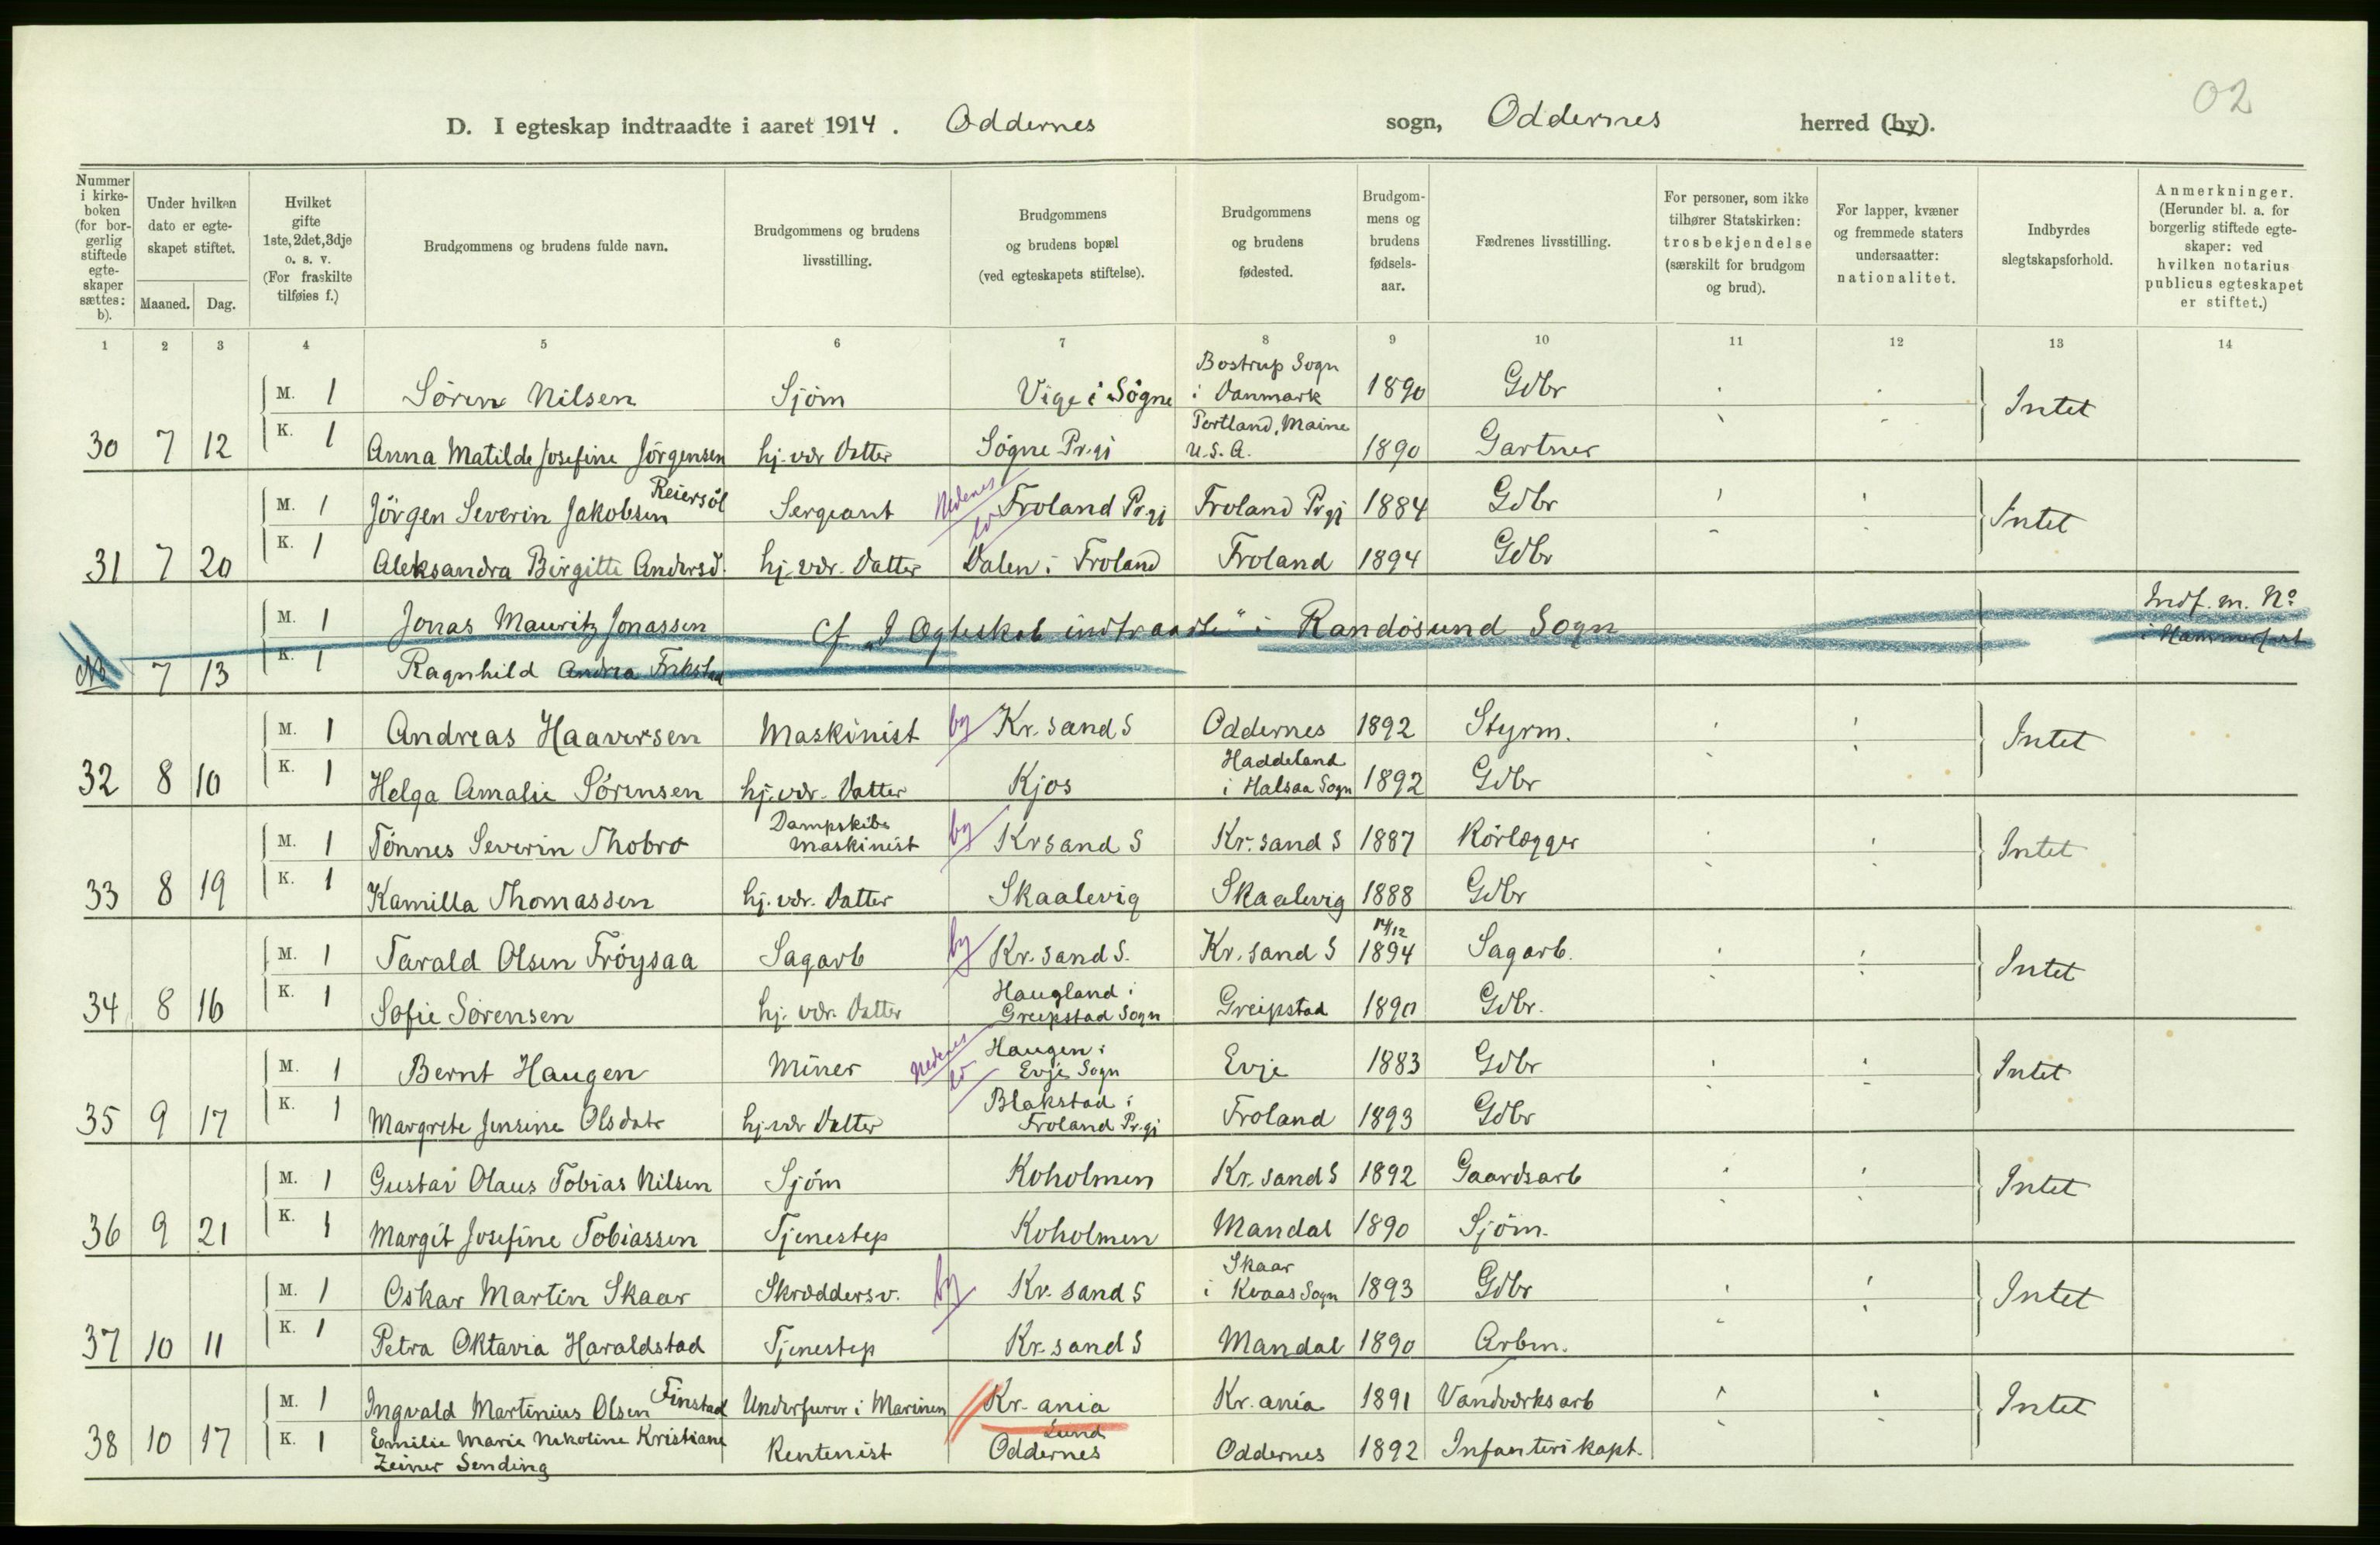 02
D. I egteskap indtraadte i aaret 1914. Oddernes sogn, Oddernes herred (by).
Nummer i kirkeboken (for borgerlig stiftede egteskaper sættes: b).
Under hvilken dato er egteskapet stiftet.
Maaned. Dag.
Hvilket gifte 1ste, 2det, 3dje o. s. v. (For fraskilte tilføies f.)
Brudgommens og brudens fulde navn.
Brudgommens og brudens livsstilling.
Brudgommens og brudens bopæl (ved egteskapets stiftelse).
Brudgommens og brudens fødested.
Brudgommens og brudens fødselsaar.
Fædrenes livsstilling.
For personer, som ikke tilhører Statskirken: trosbekjendelse (særskilt for brudgom og brud).
For lapper, kvæner og fremmede staters undersaatter: nationalitet.
Indbyrdes slegtskapsforhold.
Anmerkninger. (Herunder bl. a. for borgerlig stiftede egteskaper: ved hvilken notarius publicus egteskapet er stiftet.)
1 2 3 4 5 6 7 8 9 10 11 12 13 14
M. 1 Sören Nilsen Sjöm Vige i Sögne Bostrup Sogn i Danmark 1890 Gdbr Intet
30 7 12 K. 1 Anna Matilde Josefine Jörgensen hj. vær Datter Sögne Pr.gj Portland, Maine U.S.A. 1890 Gartner
M. 1 Jörgen Severin Jakobsen Reiersöl Sergeant Nedenes Froland Pr.gj Froland Pr.gj 1884 Gdbr Intet
31 7 20 K. 1 Aleksandra Birgitte Andersd. hj. vær. Datter Dalen i Froland Froland 1894 Gdbr
M. 1 Jonas Mauritz Jonassen Cf. "I Ægteskab indtraadte" i Randösund Sogn Indf. m. No
7 13 K. 1 Ragnhild Andrea i Hammerfest
M. 1 Andreas Haaversen Maskinist by Kr.sand S Oddernes 1892 Styrm. Intet
32 8 10 K. 1 Helga Amalie Sörensen hj. vær. Datter Kjos Haddeland i Halsaa Sogn 1892 Gdbr
M. 1 Tönnes Severin Thobro Dampskibsmaskinist by Krsand S Kr.sand S 1887 Rörlægger Intet
33 8 19 K. 1 Kamilla Thomassen hj. vær. Datter Skaalevig Skaalevig 1888 Gdbr
M. 1 Tarald Olsen Fröysaa Sagarb by Kr.sand S. Kr.sand S 14/12 1894 Sagarb. Intet
34 8 16 K. 1 Sofie Sörensen hj. vær. Datter Haugland i Greipstad Sogn Greipstad 1890 Gdbr.
M. 1 Bernt Haugen Miner Nedenes Haugen i Evje Sogn Evje 1883 Gdbr Intet
35 9 17 K. 1 Margrete Jensine Olsdatr hj. vær Datter Blakstad i Froland Pr.gj Froland 1893 Gdbr
M. 1 Gustav Olaus Tobias Nilsen Sjöm Koholmen Kr.sand S 1892 Gaardsarb Intet
36 9 21 K. 1 Margit Josefine Tobiassen Tjenestep Koholmen Mandal 1890 Sjöm.
M. 1 Oskar Martin Skaar Skræddersv. by Kr.sand S Skaar i Kvaas Sogn 1893 Gdbr Intet
37 10 11 K. 1 Petra Oktavia Haraldstad Tjenestep Kr.sand S Mandal 1890 Arbm.
M. 1 Ingvald Martinius Olsen Finstad Underfurer i Marinen Kr.ania Kr.ania 1891 Vandværksarb Intet
38 10 17 K. 1 Emilie Marie Nikoline Kristiane Zeiner Sending Rentenist Lund Oddernes Oddernes 1892 Infanterikapt.